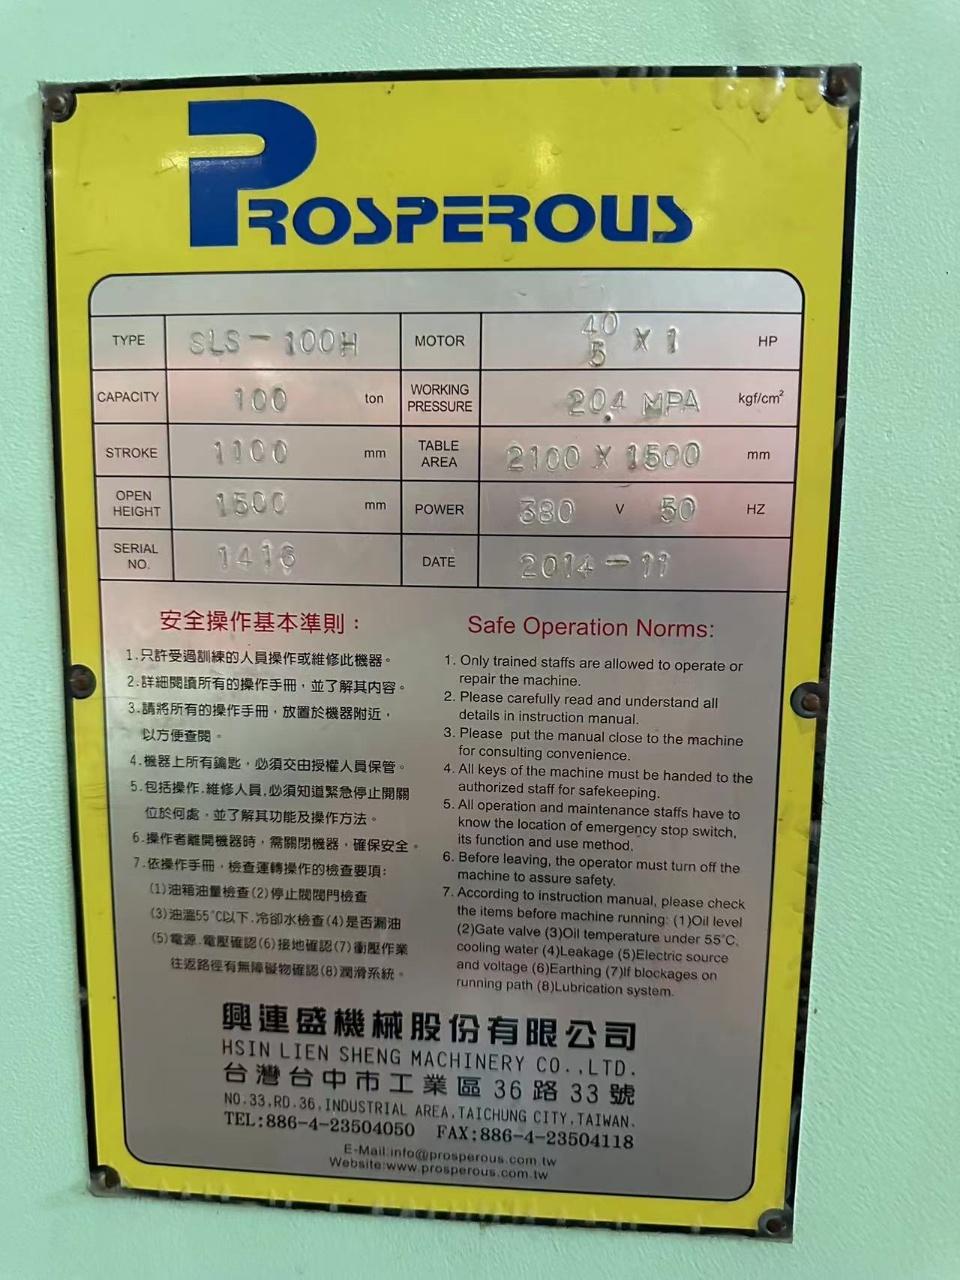 PROSPEROUS
TYPE SLS-100H MOTOR 40/5 X 1 HP
CAPACITY 100 ton WORKING PRESSURE 20.4 MPA kgf/cm²
STROKE 1100 mm TABLE AREA 2100 X 1500 mm
OPEN HEIGHT 1500 mm POWER 380 V 50 HZ
SERIAL NO. 1416 DATE 2014-11
安全操作基本準則：
1.只許受過訓練的人員操作或維修此機器。
2.詳細閱讀所有的操作手冊，並了解其內容。
3.請將所有的操作手冊，放置於機器附近，
以方便查閱。
4.機器上所有鑰匙，必須交由授權人員保管。
5.包括操作.維修人員,必須知道緊急停止開關
位於何處，並了解其功能及操作方法。
6.操作者離開機器時，需關閉機器，確保安全。
7.依操作手冊，檢查運轉操作的檢查要項:
(1)油箱油量檢查(2)停止閥閥門檢查
(3)油溫55°C以下.冷卻水檢查(4)是否漏油
(5)電源.電壓確認(6)接地確認(7)衝壓作業
往返路徑有無障礙物確認(8)潤滑系統。
Safe Operation Norms:
1. Only trained staffs are allowed to operate or
repair the machine.
2. Please carefully read and understand all
details in instruction manual.
3. Please put the manual close to the machine
for consulting convenience.
4. All keys of the machine must be handed to the
authorized staff for safekeeping.
5. All operation and maintenance staffs have to
know the location of emergency stop switch,
its function and use method.
6. Before leaving, the operator must turn off the
machine to assure safety.
7. According to instruction manual, please check
the items before machine running: (1)Oil level
(2)Gate valve (3)Oil temperature under 55°C,
cooling water (4)Leakage (5)Electric source
and voltage (6)Earthing (7)If blockages on
running path (8)Lubrication system.
興連盛機械股份有限公司
HSIN LIEN SHENG MACHINERY CO.,LTD.
台灣台中市工業區36路33號
NO.33,RD.36,INDUSTRIAL AREA,TAICHUNG CITY,TAIWAN.
TEL:886-4-23504050 FAX:886-4-23504118
E-Mail:info@prosperous.com.tw
Website:www.prosperous.com.tw